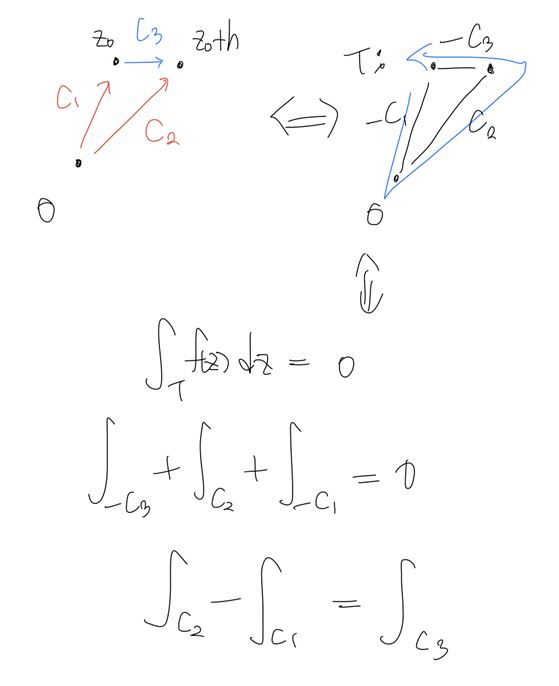 z₀ C₃ z₀+h
C₁ C₂
0
⟺
T: -C₃
-C₁ C₂
0
⇕
∫_T f(z) dz = 0
∫_{-C₃} + ∫_{C₂} + ∫_{-C₁} = 0
∫_{C₂} - ∫_{C₁} = ∫_{C₃}